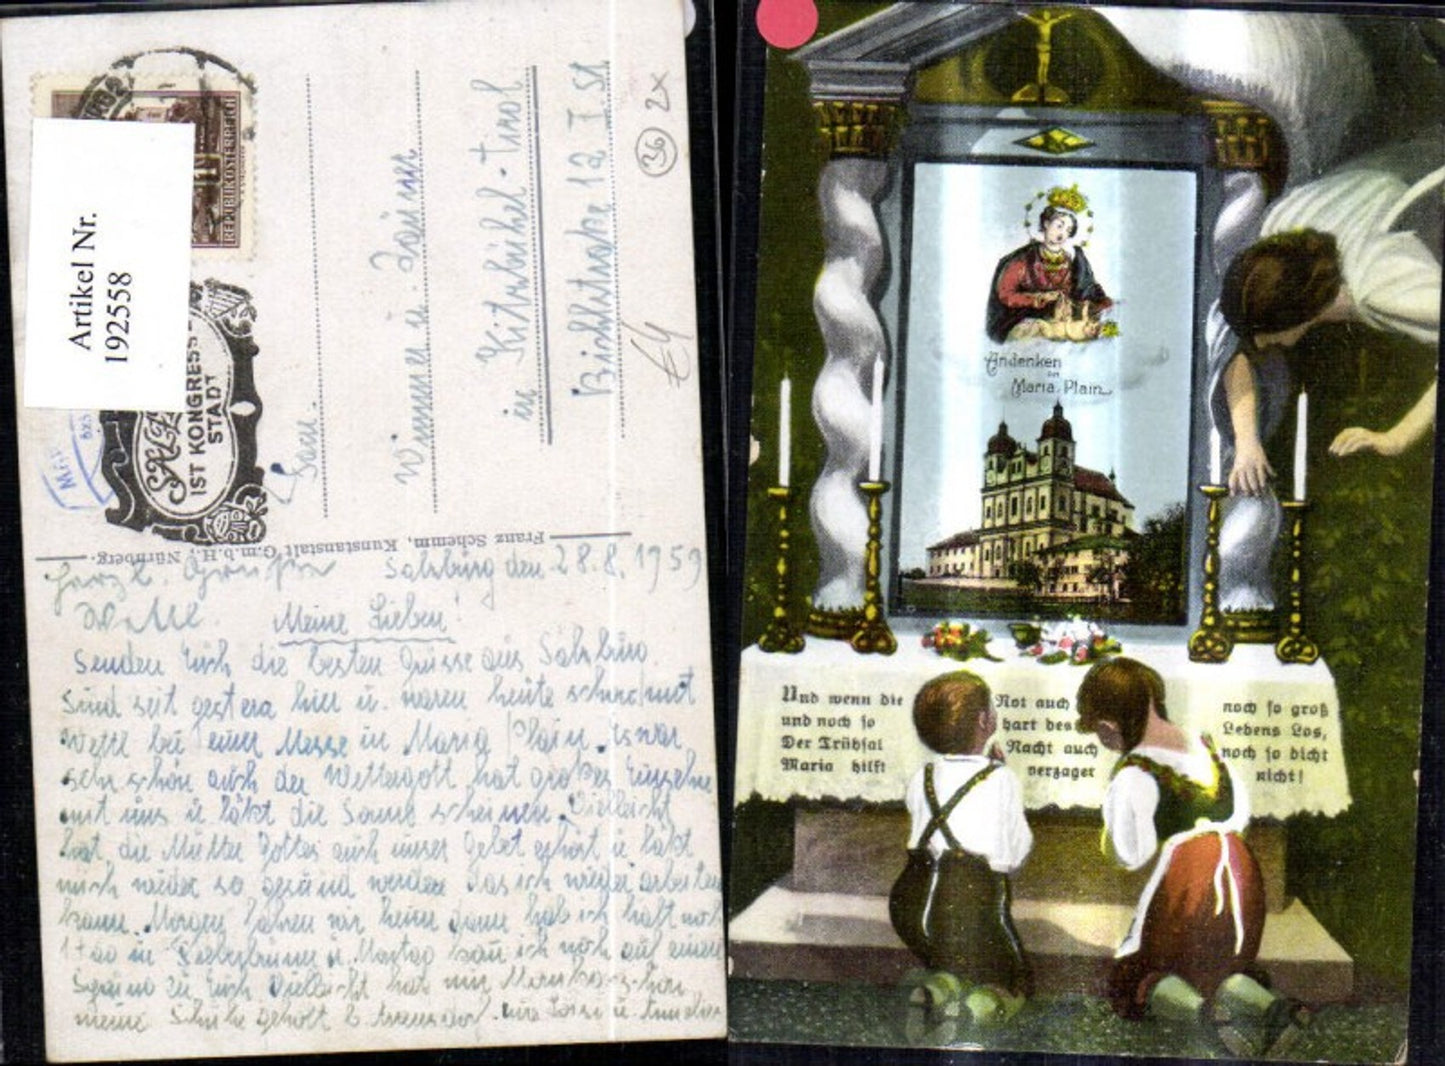 Artikel Nr.
192558
REPUBLIK ÖSTERREICH
IST KONGRESS-
STADT
Fam.
Wimmer u.
in Kitzbühel - Tirol
12 I. St
36
2x
€4
Franz Schemm, Kunstanstalt G.m.b.H., Nürnberg.
Herzl. Grüße
Salzburg den 28.8.1959
Meine Lieben!
Senden Euch die besten Grüsse aus Salzburg.
Sind seit gestern hier u. waren heute schon mit
bei einer Messe in Maria Plain. es war
sehr schön auch der Wettergott hat großes Einsehen
mit uns u läßt die Sonne scheinen. Vielleicht
hat die Mutter Gottes auch unser Gebet erhört u läßt
mich wieder so gesund werden das ich wieder arbeiten
kann. Morgen fahren wir heim dann hab ich halt noch
1 Tag in Fieberbrunn u. Montag kau ich noch auf einen
Sprung zu Euch Vielleicht hat mir
meine Schuhe geholt b.
Andenken
an
Maria-Plain
Und wenn die Not auch noch so groß
und noch so hart des Lebens Los,
Der Trübsal Nacht auch noch so dicht
Maria hilft verzager nicht!